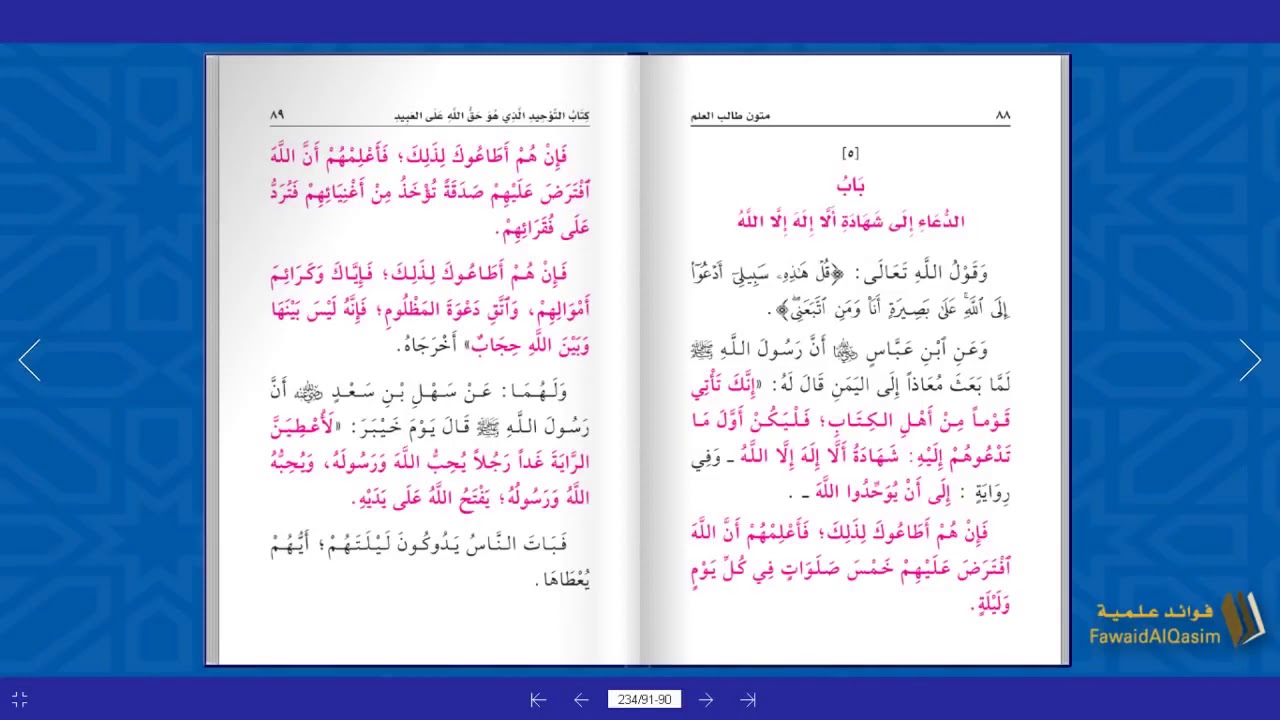 ٨٨
متون طالب العلم
[٥]
بَابُ
الدُّعَاءِ إِلَى شَهَادَةِ أَلَّا إِلَهَ إِلَّا اللَّهُ
وَقَوْلُ اللَّهِ تَعَالَى: ﴿قُلْ هَٰذِهِۦ سَبِيلِىٓ أَدْعُوٓا۟
إِلَى ٱللَّهِۚ عَلَىٰ بَصِيرَةٍ أَنَا۠ وَمَنِ ٱتَّبَعَنِىۖ﴾.
وَعَنِ ٱبْنِ عَبَّاسٍ ﵄ أَنَّ رَسُولَ اللَّهِ ﷺ
لَمَّا بَعَثَ مُعَاذاً إِلَى اليَمَنِ قَالَ لَهُ: «إِنَّكَ تَأْتِي
قَوْماً مِنْ أَهْلِ الكِتَابِ؛ فَلْيَكُنْ أَوَّلَ مَا
تَدْعُوهُمْ إِلَيْهِ: شَهَادَةُ أَلَّا إِلَهَ إِلَّا اللَّهُ ـ وَفِي
رِوَايَةٍ : إِلَى أَنْ يُوَحِّدُوا اللَّهَ ـ .
فَإِنْ هُمْ أَطَاعُوكَ لِذَلِكَ؛ فَأَعْلِمْهُمْ أَنَّ اللَّهَ
ٱفْتَرَضَ عَلَيْهِمْ خَمْسَ صَلَوَاتٍ فِي كُلِّ يَوْمٍ
وَلَيْلَةٍ.
كِتَابُ التَّوْحِيدِ الَّذِي هُوَ حَقُّ اللَّهِ عَلَى العَبِيدِ
٨٩
فَإِنْ هُمْ أَطَاعُوكَ لِذَلِكَ؛ فَأَعْلِمْهُمْ أَنَّ اللَّهَ
ٱفْتَرَضَ عَلَيْهِمْ صَدَقَةً تُؤْخَذُ مِنْ أَغْنِيَائِهِمْ فَتُرَدُّ
عَلَى فُقَرَائِهِمْ.
فَإِنْ هُمْ أَطَاعُوكَ لِذَلِكَ؛ فَإِيَّاكَ وَكَرَائِمَ
أَمْوَالِهِمْ، وَٱتَّقِ دَعْوَةَ المَظْلُومِ؛ فَإِنَّهُ لَيْسَ بَيْنَهَا
وَبَيْنَ اللَّهِ حِجَابٌ» أَخْرَجَاهُ.
وَلَهُمَا: عَنْ سَهْلِ بْنِ سَعْدٍ ﵁ أَنَّ
رَسُولَ اللَّهِ ﷺ قَالَ يَوْمَ خَيْبَرَ: «لَأُعْطِيَنَّ
الرَّايَةَ غَداً رَجُلاً يُحِبُّ اللَّهَ وَرَسُولَهُ، وَيُحِبُّهُ
اللَّهُ وَرَسُولُهُ؛ يَفْتَحُ اللَّهُ عَلَى يَدَيْهِ.
فَبَاتَ النَّاسُ يَدُوكُونَ لَيْلَتَهُمْ؛ أَيُّهُمْ
يُعْطَاهَا.
فوائد علمية
FawaidAlQasim
234/91-90